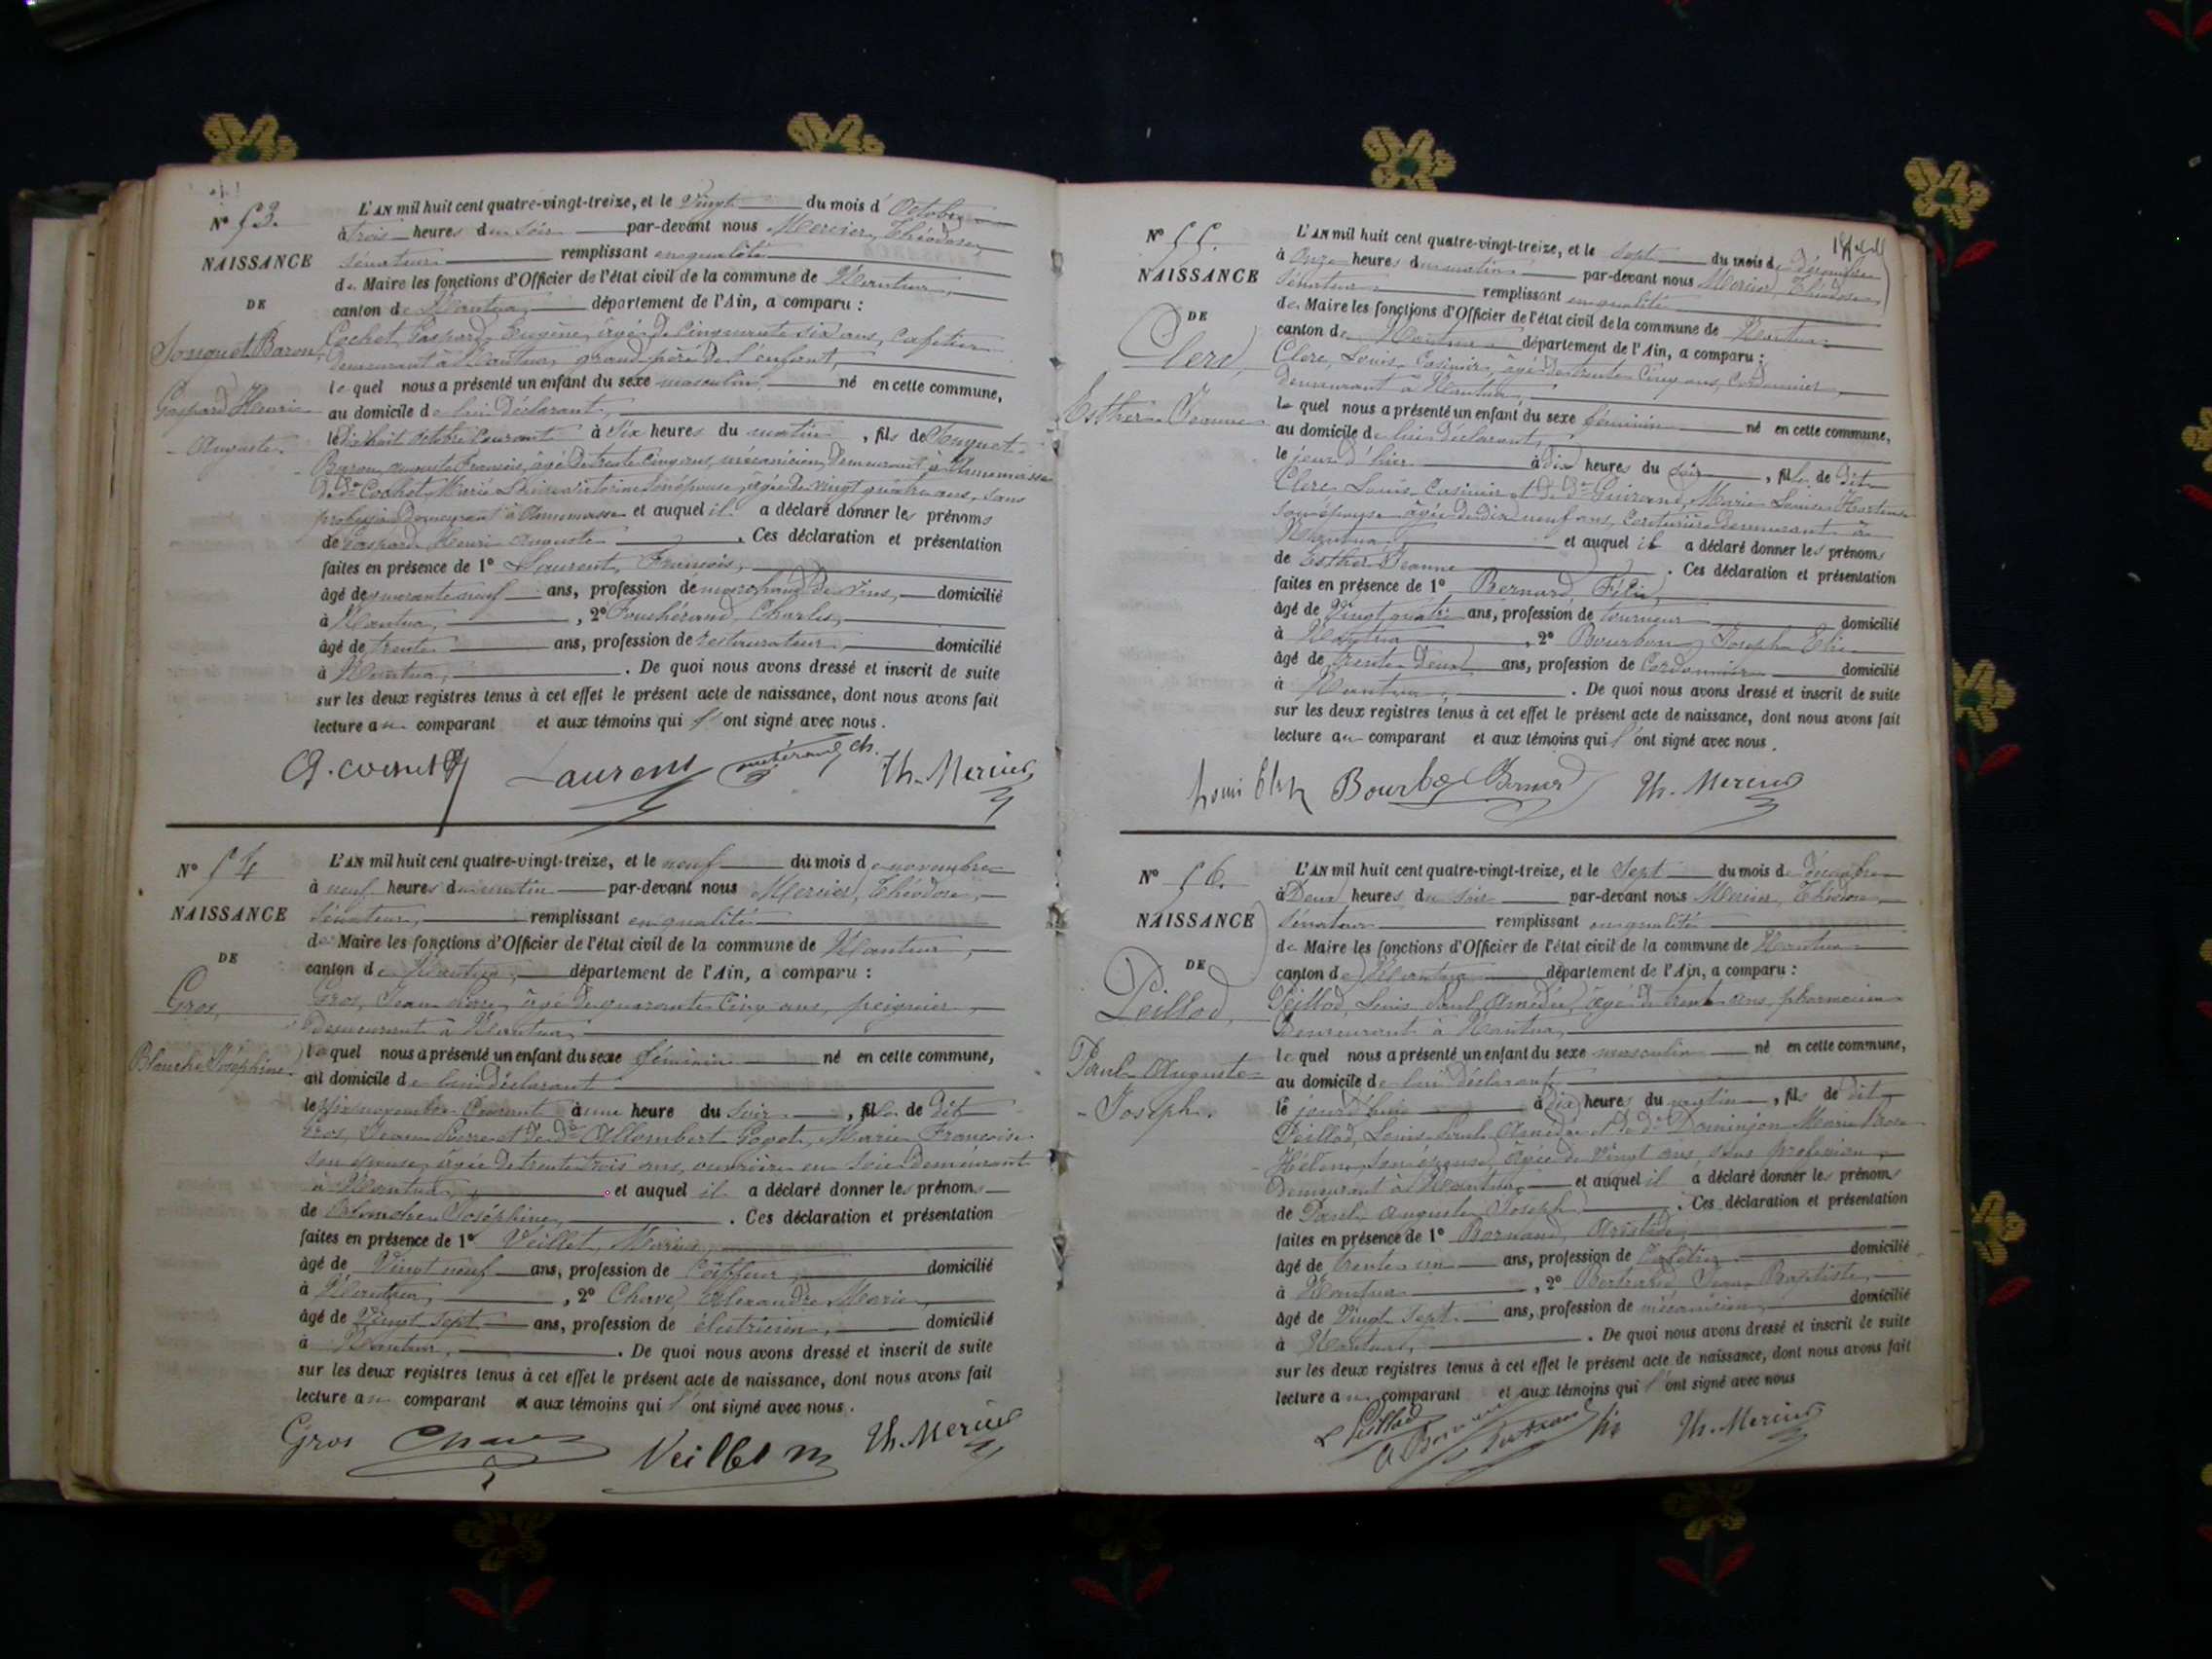 N° 53.
NAISSANCE
DE
Baron,
Gaspard Henri
Auguste.
L'AN mil huit cent quatre-vingt-treize, et le Vingt du mois d'Octobre
à trois heures du soir par-devant nous Mercier, Théodore,
Sénateur remplissant en qualité
de Maire les fonctions d'Officier de l'état civil de la commune de Nantua,
canton de Nantua, département de l'Ain, a comparu :
Cochet, Gaspard, Eugène, âgé de Cinquante six ans, Cafetier
demeurant à Nantua, grand-père de l'enfant,
lequel nous a présenté un enfant du sexe masculin né en cette commune,
au domicile de lui déclarant,
le dix huit octobre Courant à Six heures du matin, fils de
Baron, Auguste François, âgé de trente Cinq ans, mécanicien, demeurant à Annemasse
de de Cochet, Marie son épouse, âgée de vingt quatre ans, sans
profession demeurant à Annemasse et auquel il a déclaré donner les prénoms
de Gaspard Henri Auguste . Ces déclaration et présentation
faites en présence de 1° Laurent, François,
âgé de quarante neuf ans, profession de marchand de vins, domicilié
à Nantua, , 2° Fouchérand, Charles,
âgé de trente ans, profession de restaurateur, domicilié
à Nantua, . De quoi nous avons dressé et inscrit de suite
sur les deux registres tenus à cet effet le présent acte de naissance, dont nous avons fait
lecture au comparant et aux témoins qui l'ont signé avec nous.
Laurent ch. Th. Mercier
N° 54
NAISSANCE
DE
Gros,
Blanche Joséphine.
L'AN mil huit cent quatre-vingt-treize, et le neuf du mois de novembre
à neuf heures du matin par-devant nous Mercier, Théodore,
Sénateur, remplissant en qualité
de Maire les fonctions d'Officier de l'état civil de la commune de Nantua,
canton de Nantua, département de l'Ain, a comparu :
Gros, Jean Pierre, âgé de quarante Cinq ans, peignier,
demeurant à Nantua,
lequel nous a présenté un enfant du sexe féminin né en cette commune,
au domicile de lui déclarant
le six novembre Courant à une heure du soir, fille de dit
Gros, Jean Pierre et de de Allombert Goget, Marie Françoise
son épouse, âgée de trente trois ans, ouvrière en soie demeurant
à Nantua, et auquel il a déclaré donner les prénoms
de Blanche Joséphine, . Ces déclaration et présentation
faites en présence de 1° Veillet, Marius,
âgé de Vingt neuf ans, profession de Coiffeur, domicilié
à Nantua, , 2° Chave, Alexandre Marie,
âgé de Vingt sept ans, profession de électricien, domicilié
à Nantua, . De quoi nous avons dressé et inscrit de suite
sur les deux registres tenus à cet effet le présent acte de naissance, dont nous avons fait
lecture au comparant et aux témoins qui l'ont signé avec nous.
Gros Chave Veillet M Th. Mercier
N° 55.
NAISSANCE
DE
Clerc,
Esther Jeanne
L'AN mil huit cent quatre-vingt-treize, et le sept du mois de décembre
à Onze heures du matin par-devant nous Mercier, Théodore,
Sénateur remplissant en qualité
de Maire les fonctions d'Officier de l'état civil de la commune de Nantua
canton de Nantua département de l'Ain, a comparu :
Clerc, Louis Casimir, âgé de trente Cinq ans, Cordonnier,
demeurant à Nantua,
lequel nous a présenté un enfant du sexe féminin né en cette commune,
au domicile de lui déclarant,
le jour d'hier à dix heures du soir, fille de dit
Clerc, Louis Casimir et de de Guirand, Marie Louise Hortense
son épouse âgée de dix neuf ans, Couturière demeurant à
Nantua, et auquel il a déclaré donner les prénoms
de Esther Jeanne . Ces déclaration et présentation
faites en présence de 1° Bernard, Félix,
âgé de Vingt quatre ans, profession de tourneur domicilié
à Nantua , 2° Bourbon, Joseph Elie
âgé de trente Deux ans, profession de Cordonnier domicilié
à Nantua, . De quoi nous avons dressé et inscrit de suite
sur les deux registres tenus à cet effet le présent acte de naissance, dont nous avons fait
lecture au comparant et aux témoins qui l'ont signé avec nous.
Bourbon Bernard Th. Mercier
N° 56.
NAISSANCE
DE
Peillod,
Paul Auguste
Joseph.
L'AN mil huit cent quatre-vingt-treize, et le Sept du mois de décembre
à Deux heures du soir par-devant nous Mercier, Théodore,
Sénateur remplissant en qualité
de Maire les fonctions d'Officier de l'état civil de la commune de Nantua
canton de Nantua département de l'Ain, a comparu :
Peillod, Louis Paul Amédée, âgé de trente ans, pharmacien
demeurant à Nantua,
lequel nous a présenté un enfant du sexe masculin né en cette commune,
au domicile de lui déclarant,
le jourd'hui à dix heures du matin, fils de dit
Peillod, Louis Paul Amédée et de de Dominjon Marie Rose
Hélène, son épouse, âgée de Vingt ans, sans profession,
demeurant à Nantua, et auquel il a déclaré donner les prénoms
de Paul Auguste Joseph . Ces déclaration et présentation
faites en présence de 1° Bornand, Aristide,
âgé de trente un ans, profession de Cafetier domicilié
à Nantua , 2° Bertrand, Jean Baptiste,
âgé de Vingt Sept ans, profession de mécanicien, domicilié
à Nantua, . De quoi nous avons dressé et inscrit de suite
sur les deux registres tenus à cet effet le présent acte de naissance, dont nous avons fait
lecture au comparant et aux témoins qui l'ont signé avec nous
L Peillod Th. Mercier